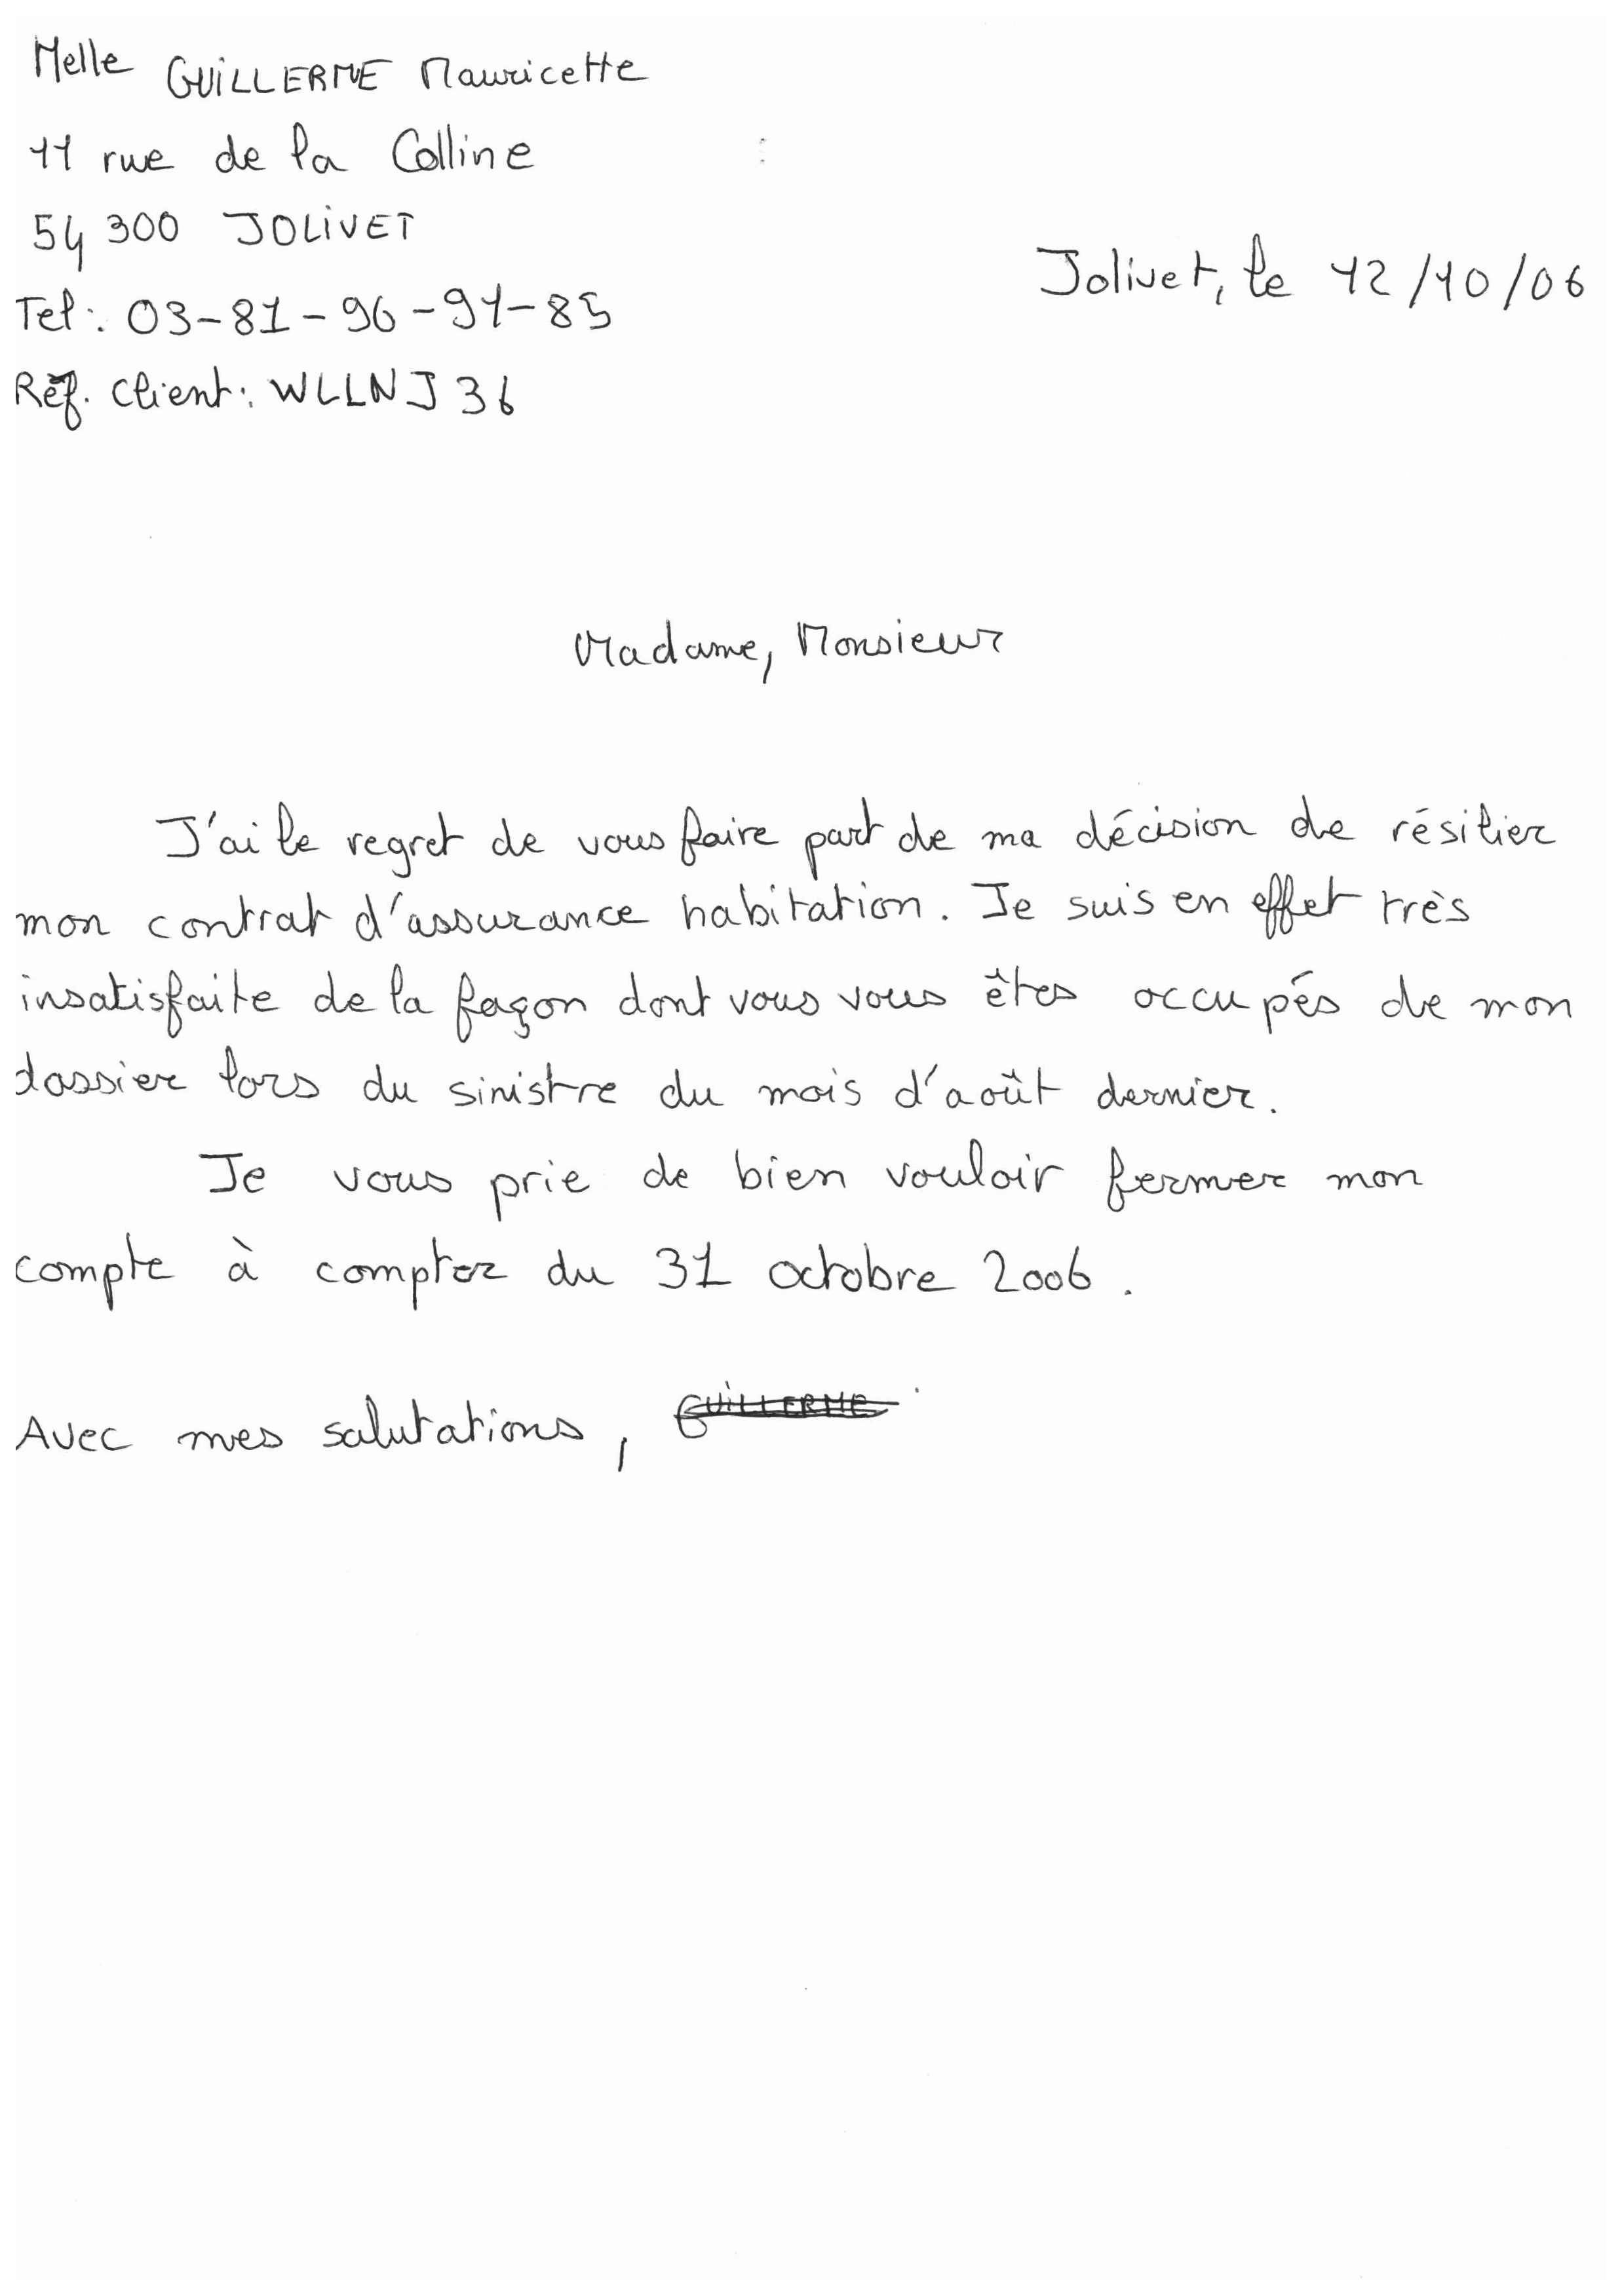 Melle GUILLERME Mauricette
11 rue de la Colline
54 300 JOLIVET
Jolivet, le 12/10/06
Tel: 03-81-96-91-85
Réf. Client: WLLNJ36
Madame, Monsieur
J'ai le regret de vous faire part de ma décision de résilier
mon contrat d'assurance habitation. Je suis en effet très
insatisfaite de la façon dont vous vous êtes occupés de mon
dossier lors du sinistre du mois d'août dernier.
Je vous prie de bien vouloir fermer mon
compte à compter du 31 octobre 2006.
Avec mes salutations, GUILLERME